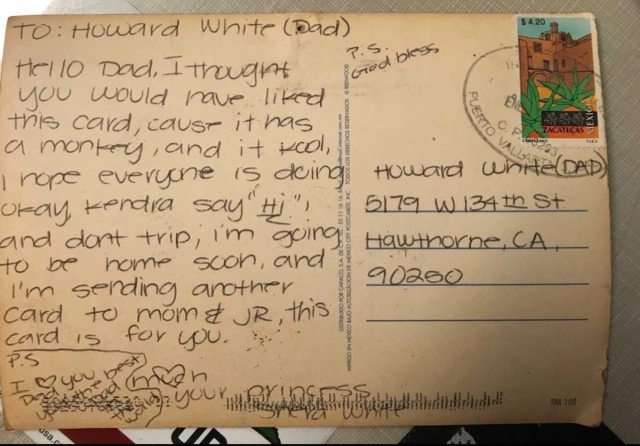 TO: Howard White (Dad)
Hello Dad, I thought
you would have liked
this card, cause it has
a monkey, and it kool,
I hope everyone is doing
okay, Kendra say "Hi",
and dont trip, i'm going
to be home soon, and
I'm sending another
card to mom & JR, this
card is for you.
P.S
I ♡ you best
Dad
much
your princess
White
P.S.
God bless
$4.20
ZACATECAS
PUERTO VALLARTA
Howard White (DAD)
5179 W 134th St
Hawthorne, CA,
90250